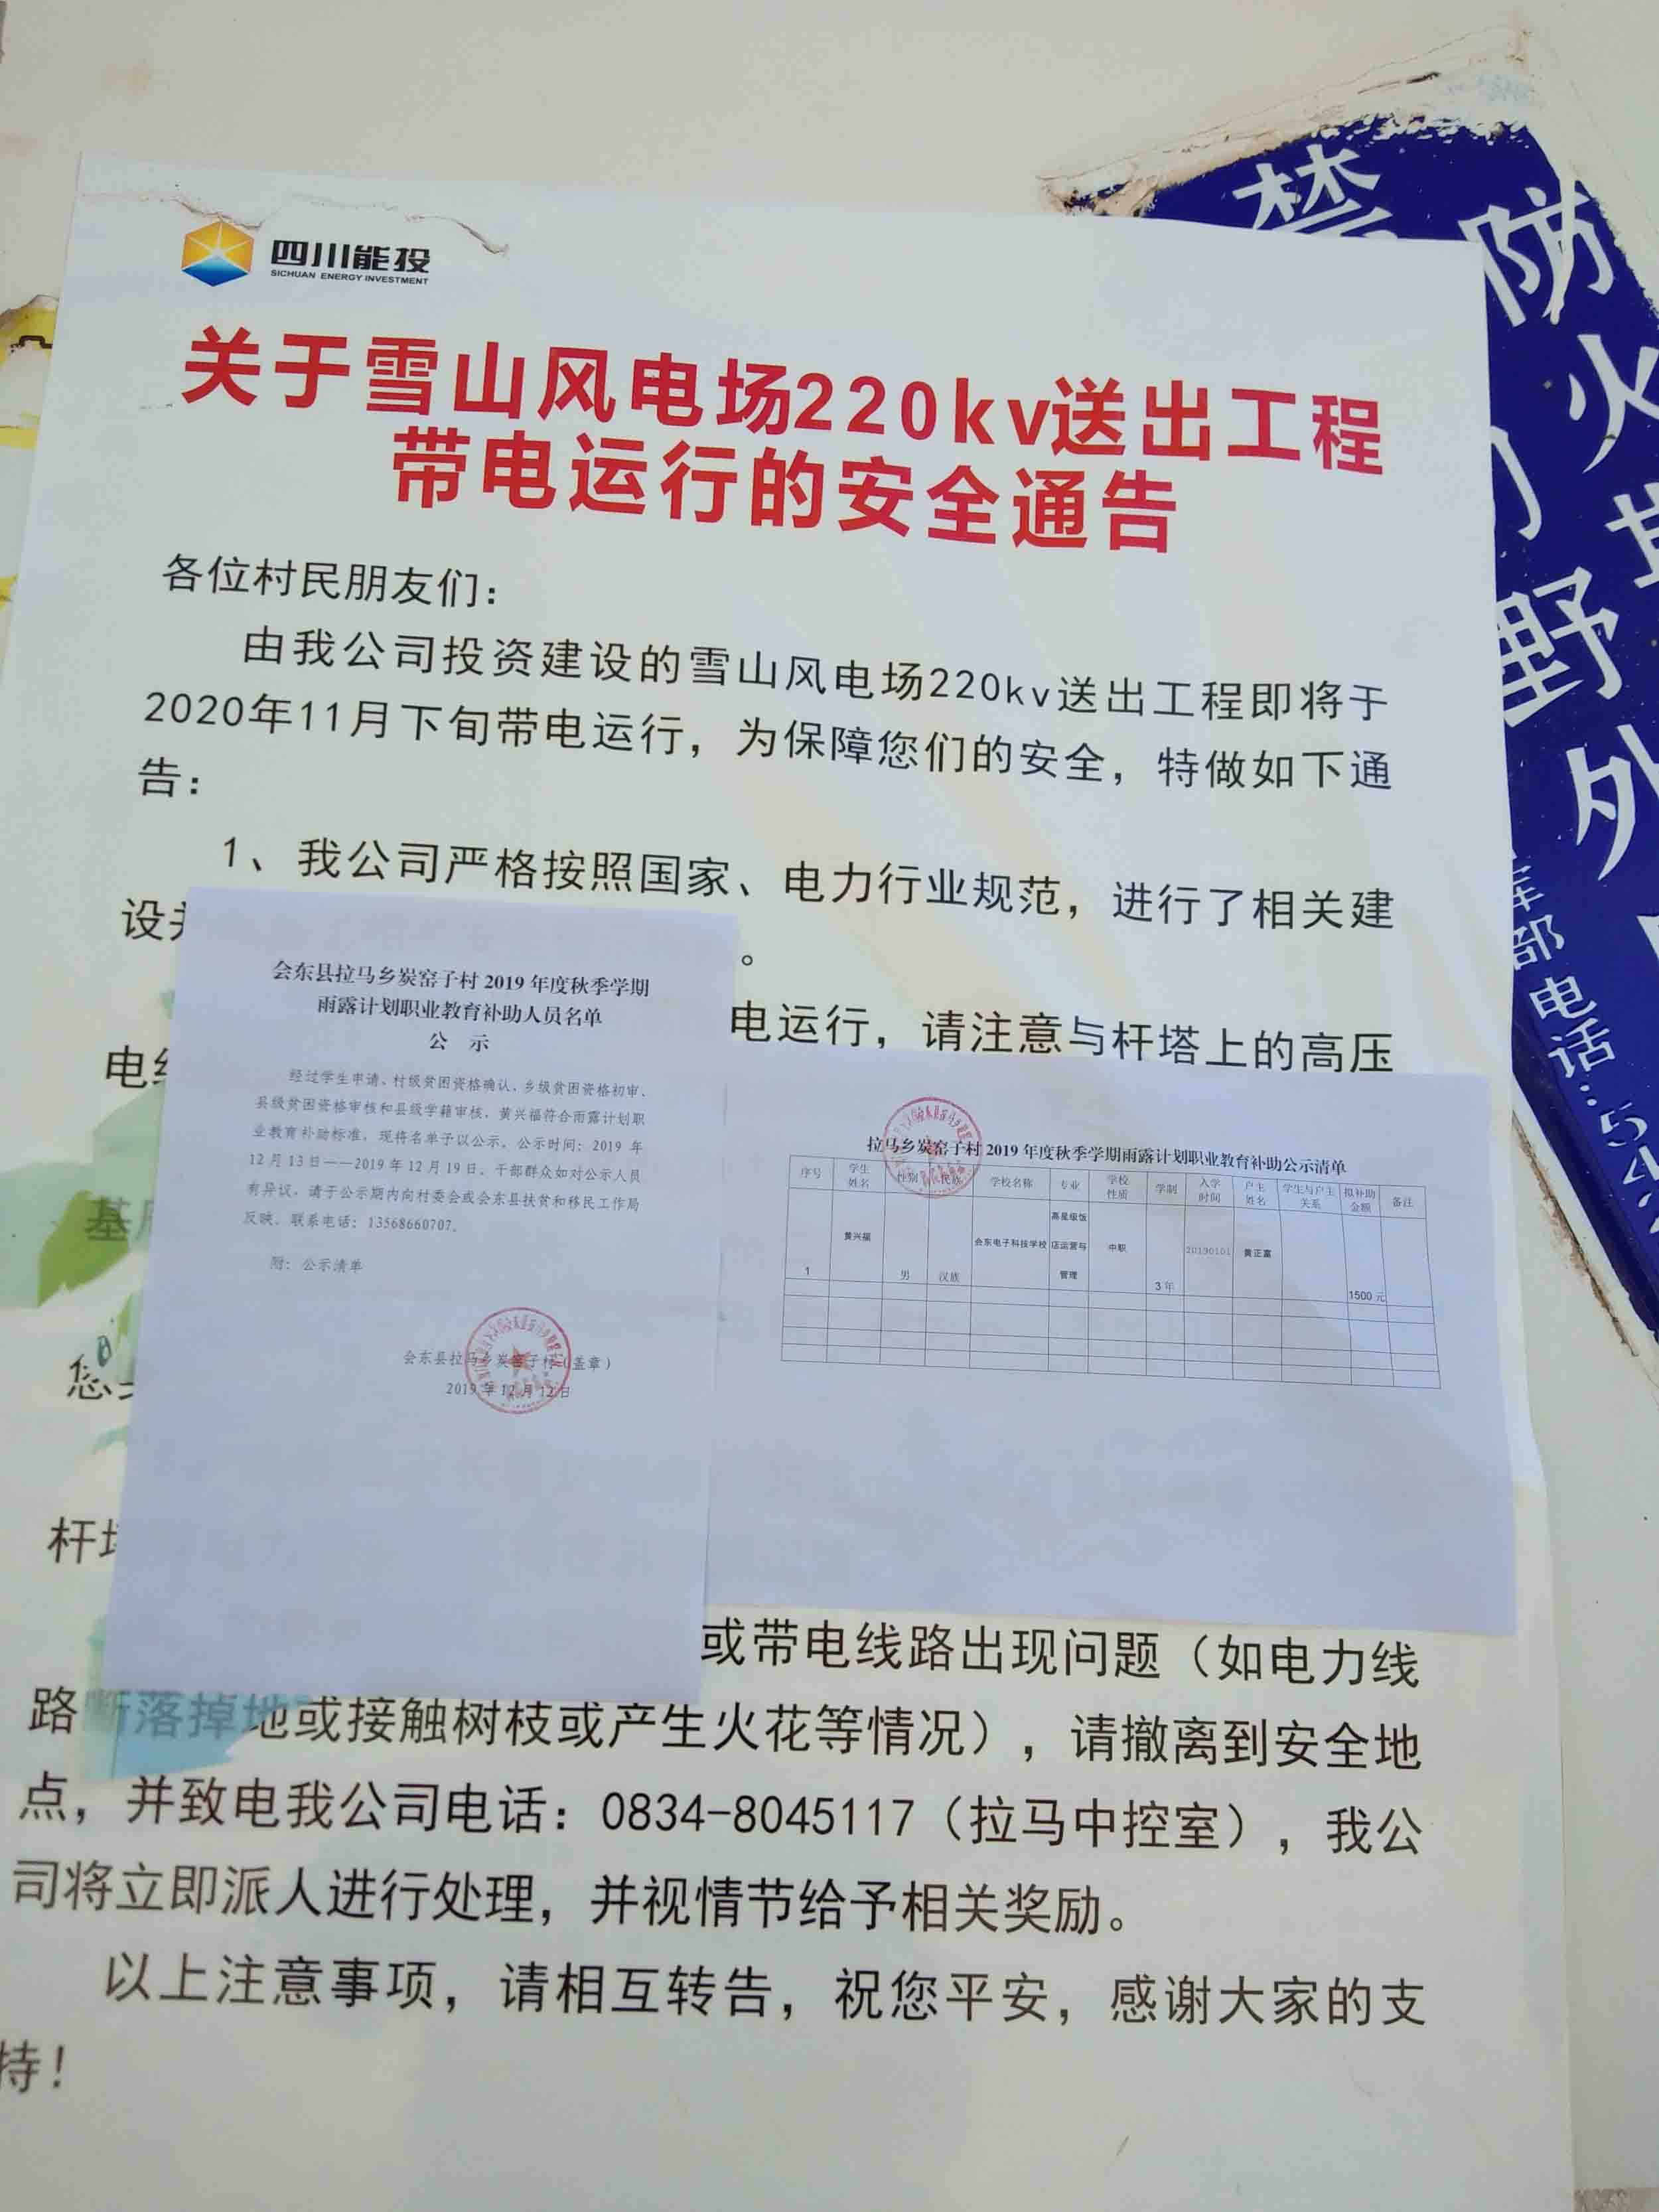 四川能投
SICHUAN ENERGY INVESTMENT
关于雪山风电场220kv送出工程
带电运行的安全通告
各位村民朋友们：
由我公司投资建设的雪山风电场220kv送出工程即将于
2020年11月下旬带电运行，为保障您们的安全，特做如下通
告：
1、我公司严格按照国家、电力行业规范，进行了相关建
设
。
电运行，请注意与杆塔上的高压
电
基
您
杆
或带电线路出现问题（如电力线
路断落掉地或接触树枝或产生火花等情况），请撤离到安全地
点，并致电我公司电话：0834-8045117（拉马中控室），我公
司将立即派人进行处理，并视情节给予相关奖励。
以上注意事项，请相互转告，祝您平安，感谢大家的支
持！
会东县拉马乡炭窑子村 2019 年度秋季学期
雨露计划职业教育补助人员名单
公 示
经过学生申请、村级贫困资格确认、乡级贫困资格初审、
县级贫困资格审核和县级学籍审核，黄兴福符合雨露计划职
业教育补助标准，现将名单予以公示。公示时间：2019 年
12 月 13 日——2019 年 12 月 19 日。干部群众如对公示人员
有异议，请于公示期内向村委会或会东县扶贫和移民工作局
反映。联系电话：13568660707。
附：公示清单
会东县拉马乡炭窑子村（盖章）
2019 年 12 月 12 日
拉马乡炭窑子村 2019 年度秋季学期雨露计划职业教育补助公示清单
序号 学生姓名 性别 民族 学校名称 专业 学校性质 学制 入学时间 户主姓名 学生与户主关系 拟补助金额 备注
1 黄兴福 男 汉族 会东电子科技学校 高星级饭店运营与管理 中职 3 年 20190101 黄正富 1500 元
禁
防
火
野
外
部电话：